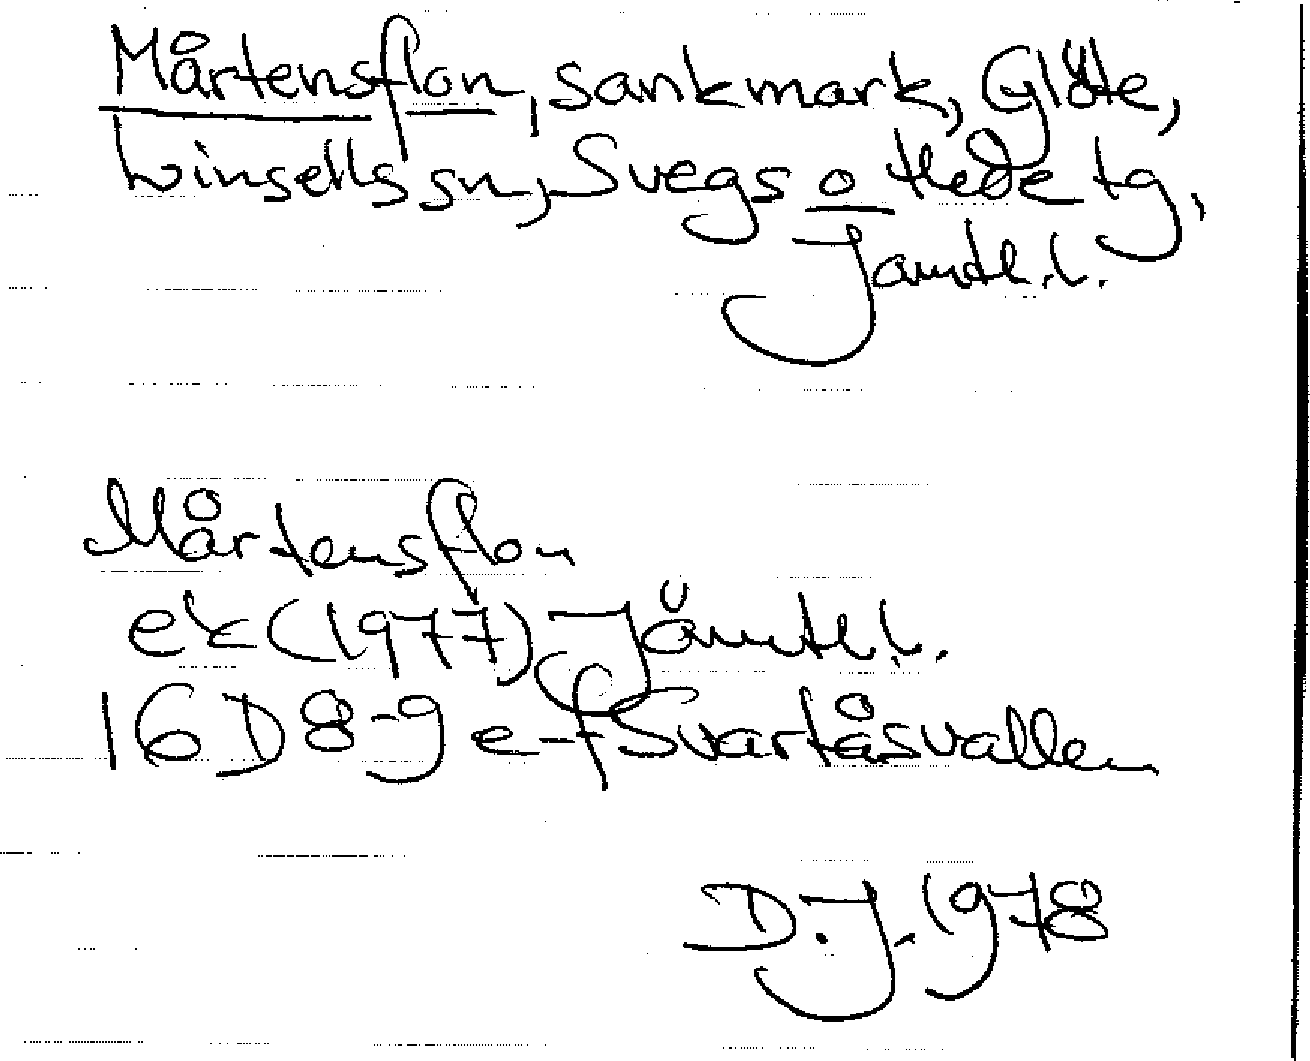 Mårtensflon, sankmark, Glöte,
Linsells sn, Svegs o Hede tg,
Jämtl. l.
Mårtensflon
ek (1977) Jämtl l.
16D 8-9 e-f Svartåsvallen
D.J. 1978